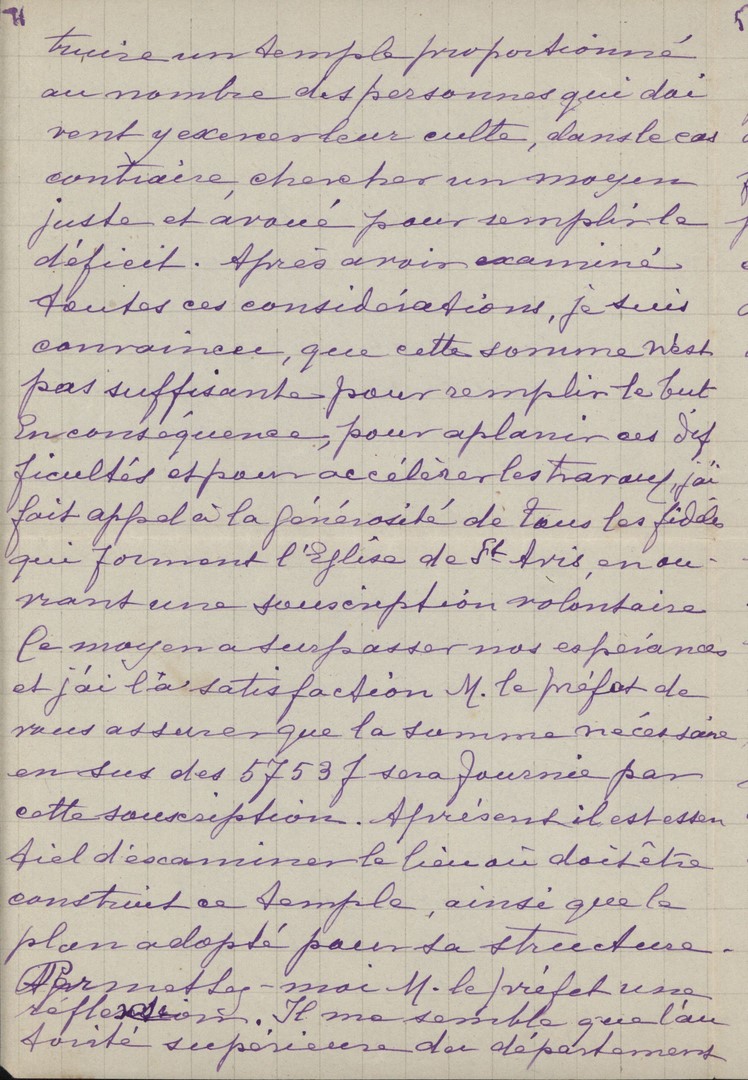 truire un temple proportionné
au nombre des personnes qui doi
vent y exercer leur culte, dans le cas
contraire, chercher un moyen
juste et avoué pour remplir le
déficit. Après avoir examiné
toutes ces considérations, je suis
convaincu, que cette somme n'est
pas suffisante pour remplir le but
En conséquence, pour aplanir ces dif
ficultés et pour accélèrer les travaux, j'ai
fait appel à la générosité de tous les fidèles
qui forment l'Eglise de St Avis, en ou-
vrant une souscription volontaire
Ce moyen a surpasser nos espérances
et j'ai la satisfaction M. le préfet de
vous assurer que la somme nécéssaire
en sus des 5753 f sera fournie par
cette souscription. Aprésent il est essen
tiel d'examiner le lieu où doit être
construit ce temple, ainsi que le
plan adopté pour sa structure.
Permettez-moi M. le préfet une
réflexion. Il me semble que l'au
torité supérieure du département